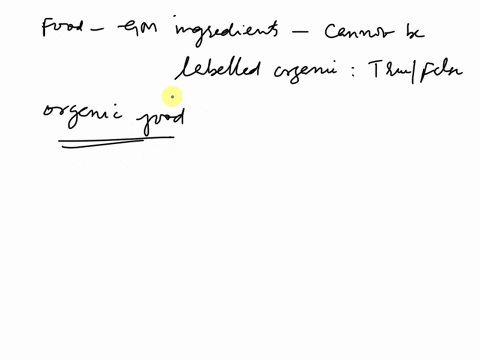 Food - GM ingredients - Cannot be
labelled organic : True/False
organic food